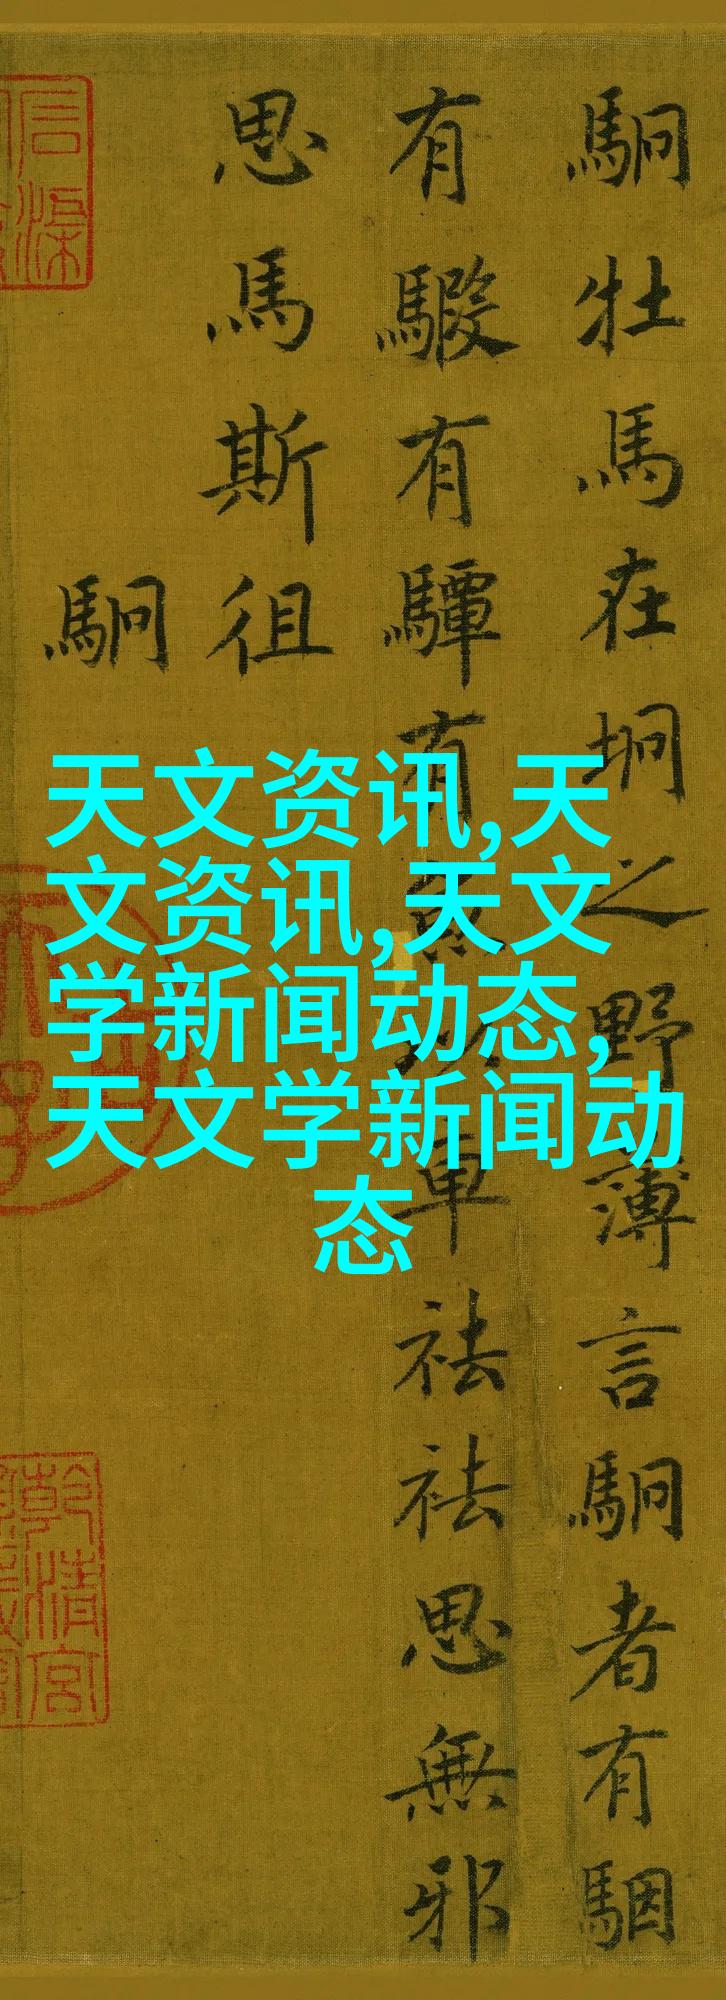 駉牡馬在坰之野薄言駉者有駰
有騢有驔有以車祛祛思無邪
思馬斯徂
駉
天文资讯,天
文资讯,天文
学新闻动态,
天文学新闻动
态
乾清宮